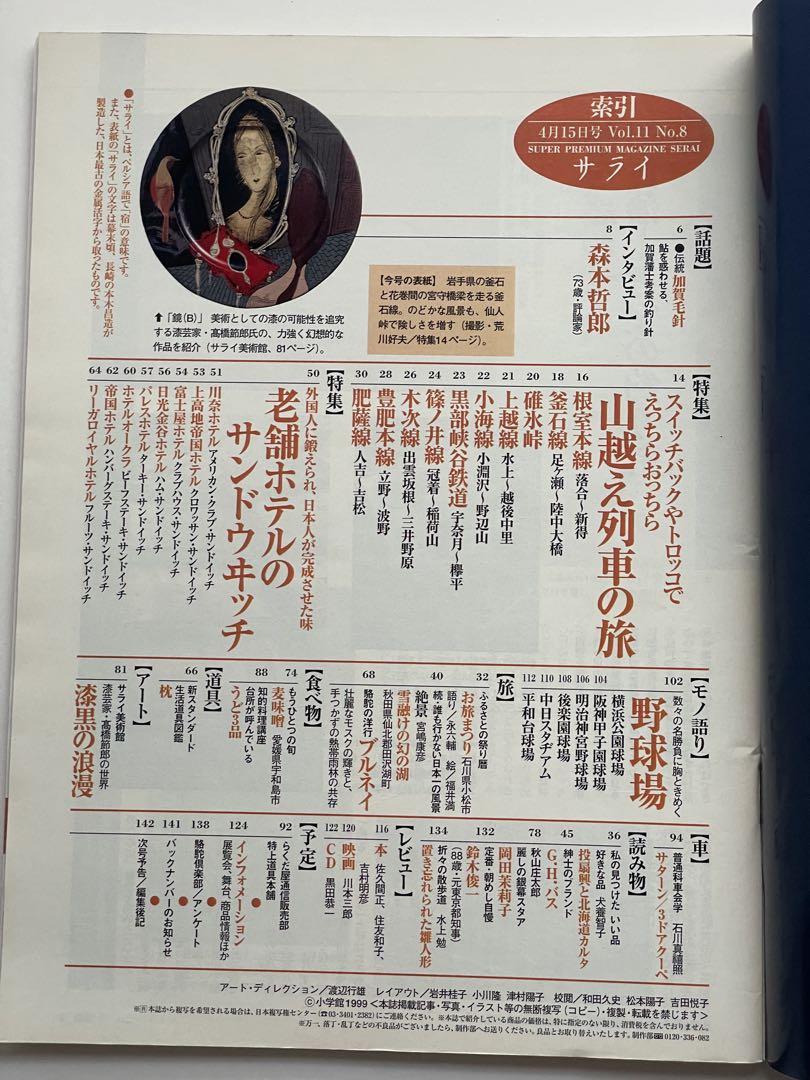 索引
4月15日号 Vol.11 No.8
SUPER PREMIUM MAGAZINE SERAI
サライ
●「サライ」とは、ペルシア語で「宿」の意味です。
また、表紙の「サライ」の文字は幕末頃、長崎の本木昌造が
製造した、日本最古の金属活字から取ったものです。
⬆「鏡(B)」 美術としての漆の可能性を追究
する漆芸家・髙橋節郎氏の、力強く幻想的な
作品を紹介(サライ美術館、81ページ)。
【今号の表紙】 岩手県の釜石
と花巻間の宮守橋梁を走る釜
石線。のどかな風景も、仙人
峠で険しさを増す(撮影・荒
川好夫/特集14ページ)。
【話題】
6
●伝統 加賀毛針
鮎を惑わせる、
加賀藩士考案の釣り針
【インタビュー】
8
森本哲郎
(73歳・評論家)
【特集】
14
スイッチバックやトロッコで
えっちらおっちら
山越え列車の旅
16 根室本線 落合〜新得
18 釜石線 足ヶ瀬〜陸中大橋
20 碓氷峠
21 上越線 水上〜越後中里
22 小海線 小淵沢〜野辺山
23 黒部峡谷鉄道 宇奈月〜欅平
24 篠ノ井線 冠着〜稲荷山
26 木次線 出雲坂根〜三井野原
28 豊肥本線 立野〜波野
30 肥薩線 人吉〜吉松
【特集】
50
外国人に鍛えられ、日本人が完成させた味
老舗ホテルの
サンドウヰッチ
51 川奈ホテル アメリカン・クラブ・サンドイッチ
53 上高地帝国ホテル クロワッサン・サンドイッチ
54 富士屋ホテル クラブハウス・サンドイッチ
56 日光金谷ホテル ハム・サンドイッチ
57 パレスホテル ターキー・サンドイッチ
60 ホテルオークラ ビーフステーキ・サンドイッチ
62 帝国ホテル ハンバーグステーキ・サンドイッチ
64 リーガロイヤルホテル フルーツ・サンドイッチ
【モノ語り】
102
数々の名勝負に胸ときめく
野球場
104 横浜公園球場
106 阪神甲子園球場
108 明治神宮野球場
108 後楽園球場
110 中日スタヂアム
112 平和台球場
【旅】
32
ふるさとの祭り暦
お旅まつり 石川県小松市
語り/永六輔 絵/福井満
40
続・誰も行かない日本一の風景
絶景 宮嶋康彦
雪融けの幻の湖
秋田県仙北郡田沢湖町
68
駱駝の洋行 ブルネイ
壮麗なモスクの輝きと、
手つかずの熱帯雨林の共存
【食べ物】
74
もうひとつの旬
麦味噌 愛媛県宇和島市
88
知的料理講座
台所が呼んでいる
うど3品
【道具】
66
新スタンダード
生活道具図鑑
枕
【アート】
81
サライ美術館
漆芸家・髙橋節郎の世界
漆黒の浪漫
【車】
94
普通科車会学 石川真禧照
サターン/3ドアクーペ
【読み物】
36
私の見つけた いい品
好きな品 犬養智子
投扇興と北海道カルタ
45
紳士のブランド
G・H・バス
78
秋山庄太郎
麗しの銀幕スタア
岡田茉莉子
132
定番・朝めし自慢
鈴木俊一
(88歳・元東京都知事)
134
折々の散歩道 水上 勉
置き忘れられた雛人形
【レビュー】
116
本 佐久間正、住友和子、
吉村明彦
120
映画 川本三郎
122
CD 黒田恭一
【予定】
92
らくだ屋通信販売部
特上道具本舗
124
インフォメーション
展覧会、舞台、商品情報ほか
138
駱駝倶楽部/アンケート
141
バックナンバーのお知らせ
142
次号予告/編集後記
アート・ディレクション/渡辺行雄 レイアウト/岩井桂子 小川隆 津村陽子 校閲/和田久史 松本陽子 吉田悦子
©小学館1999<本誌掲載記事・写真・イラスト等の無断複写(コピー)・複製・転載を禁じます>
※Ⓡ本誌から複写を希望される場合は、日本複写権センター(☎03-3401-2382)にご連絡ください。※本誌で紹介している商品の価格は、特に指定のない限り、消費税を含んでおりません。
※万一、落丁・乱丁などの不良品がございましたら、制作部へお送りください。良品とお取り替えいたします。制作部 0120-336-082